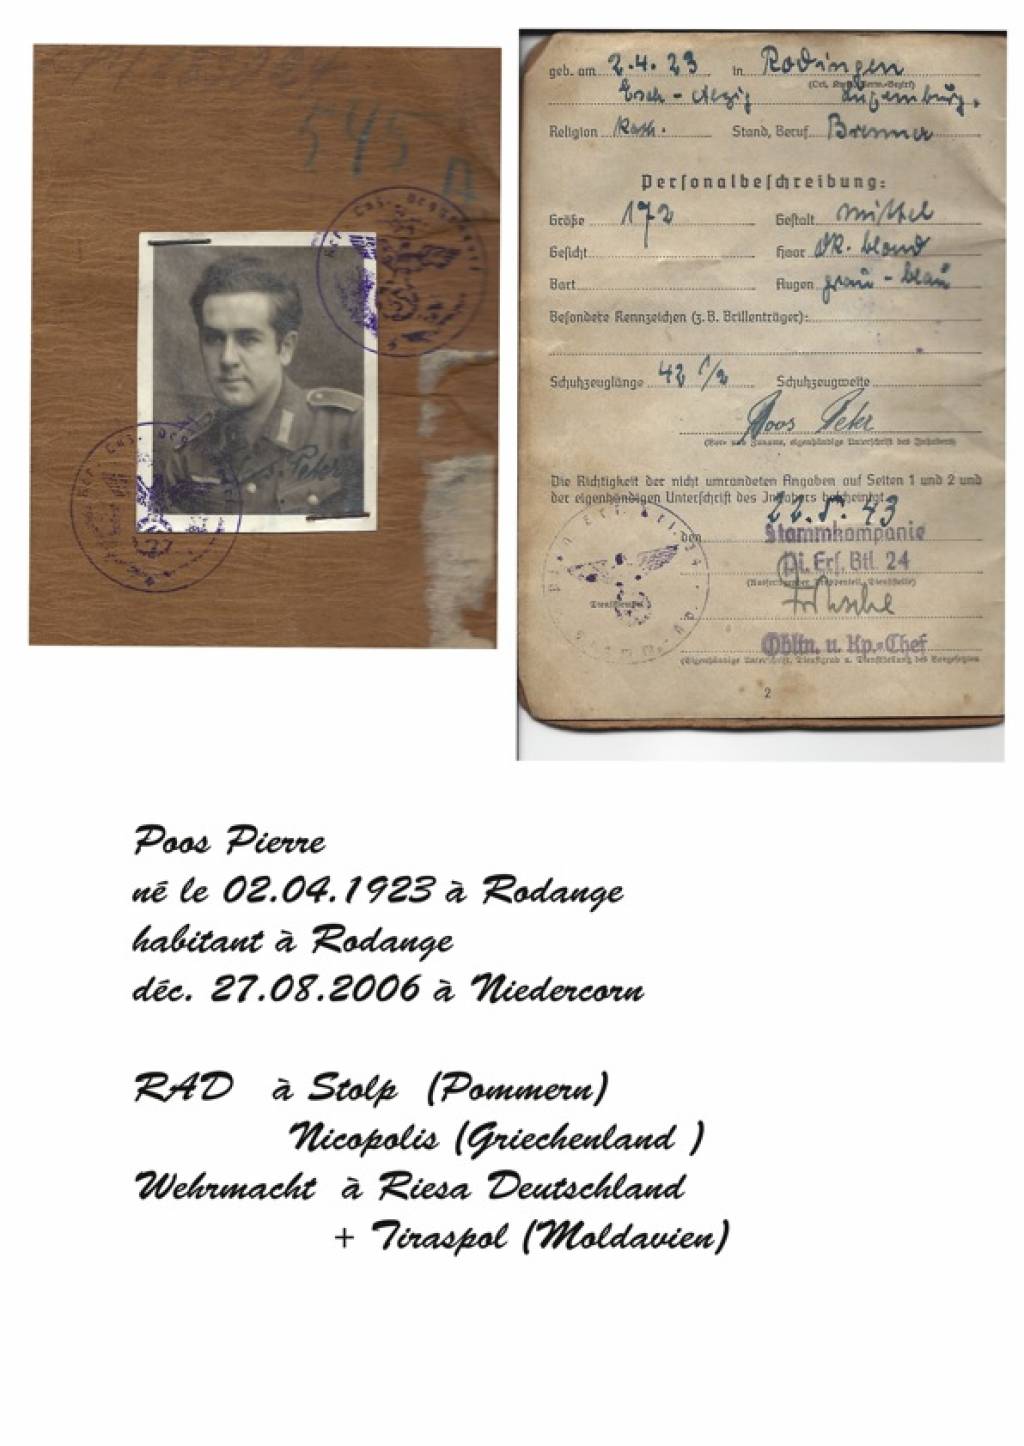 545
A
Poos Peter
geb. am 2.4.23 in Rodingen
(Ort, Kreis, Verw.-Bezirk)
Esch-Alzig Luxemburg.
Religion Kath. Stand, Beruf Brenner
Personalbeschreibung:
Größe 172 Gestalt mittel
Gesicht Haar dk. blond
Bart Augen grau-blau
Besondere Kennzeichen (z.B. Brillenträger):
Schuhzeuglänge 42 1/2 Schuhzeugweite
Poos Peter
(Vor- und Zuname, eigenhändige Unterschrift des Inhabers)
Die Richtigkeit der nicht umrandeten Angaben auf Seiten 1 und 2 und
der eigenhändigen Unterschrift des Inhabers bescheinigt
den 22.5.43
Stammkompanie
Pi. Ers. Btl. 24
(Ausfertigender Truppenteil, Dienststelle)
Dienststempel
Obltn. u. Kp.-Chef
(Eigenhändige Unterschrift, Dienstgrad u. Dienststellung des Vorgesetzten
2
Poos Pierre
né le 02.04.1923 à Rodange
habitant à Rodange
déc. 27.08.2006 à Niedercorn
RAD à Stolp (Pommern)
Nicopolis (Griechenland )
Wehrmacht à Riesa Deutschland
+ Tiraspol (Moldavien)